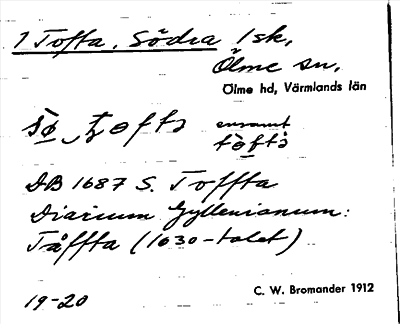 1 Tofta, Södra 1 sk,
Ölme sn,
Ölme hd, Värmlands län
ensamt
DB 1687 S. Toffta
Diarium Gyllenianum:
Tåffta (1630-talet)
19-20
C. W. Bromander 1912